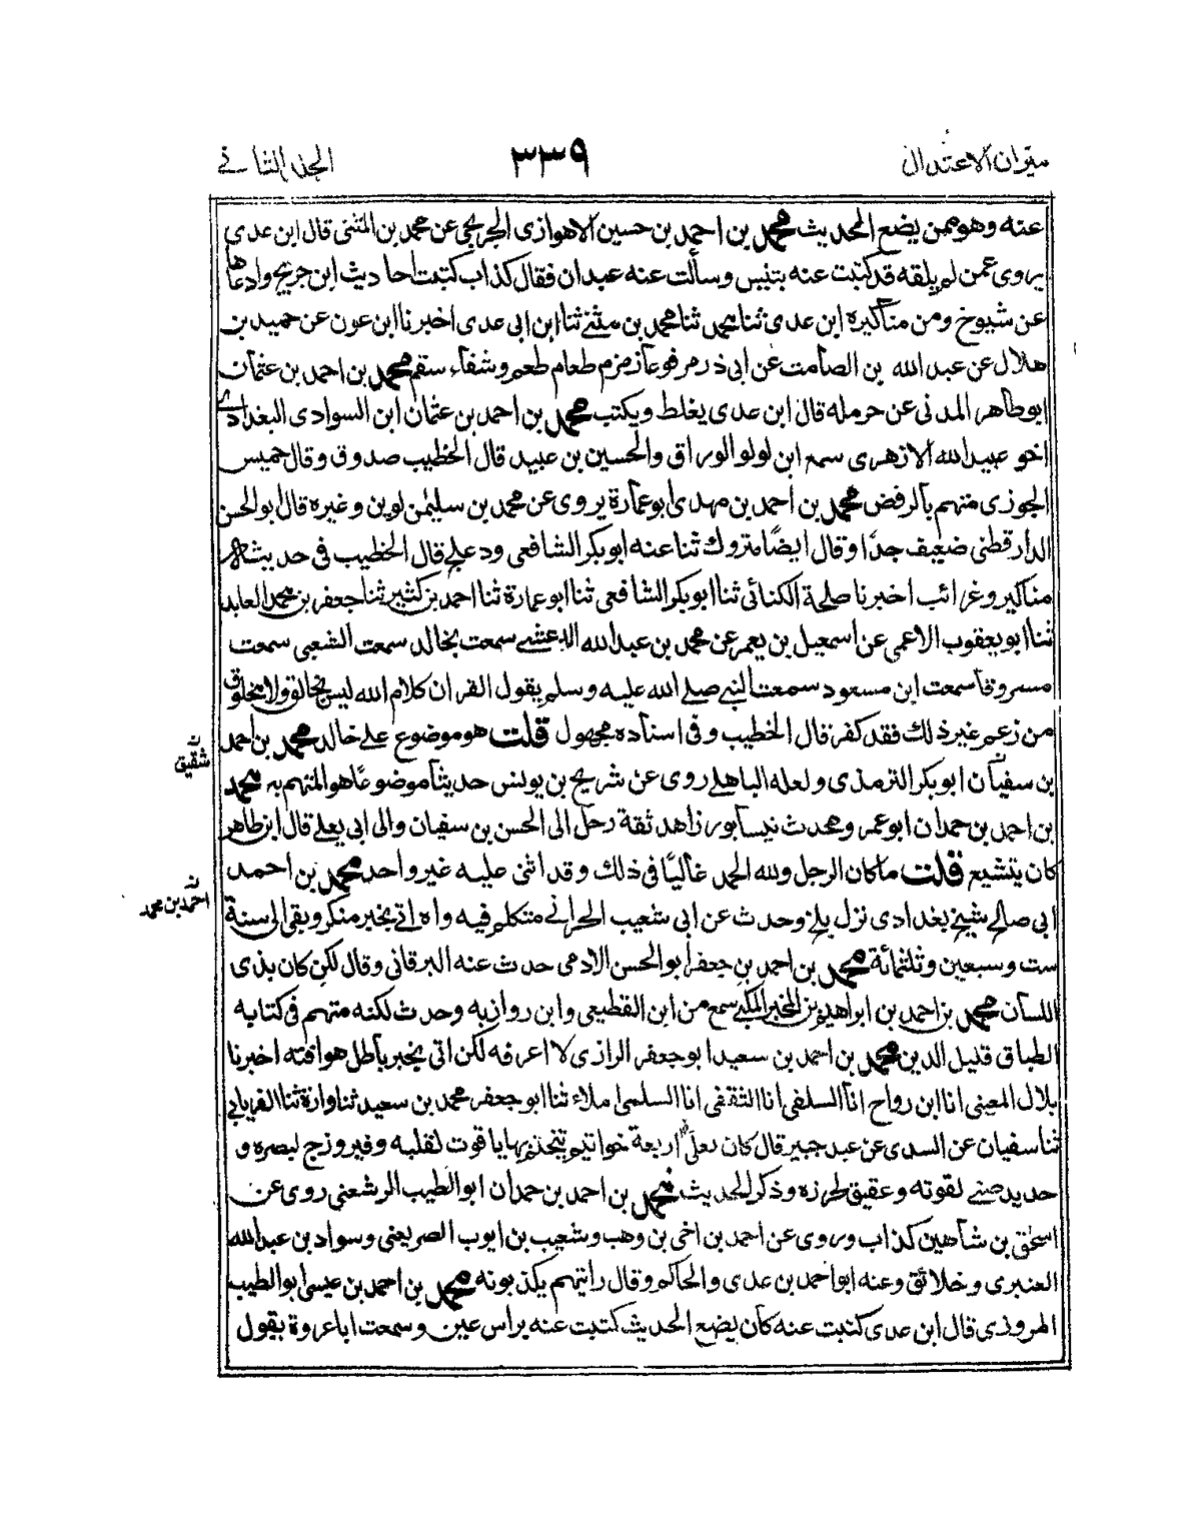 ميزان الاعتدال ٣٣٩ الجلد الثاني
عنه وهو ممن يضع الحديث محمد بن احمد بن حسين الاهوازى الجريجى عن محمد بن المثنى قال ابن عدى
يروى عمن لم يلقه قد كتبت عنه بتنيس وسألت عنه عبدان فقال كذاب كتبت احاديث ابن جريج وادعاها
عن شيوخ ومن مناكيره ابن عدى ثنا محمد ثنا محمد بن مثنى ثنا ابن ابى عدى اخبرنا ابن عون عن حميد بن
هلال عن عبد الله بن الصامت عن ابى ذر مرفوعا زمزم طعام طعم وشفاء سقم محمد بن احمد بن عثمان
ابو طاهر المدنى عن حرمله قال ابن عدى يغلط ويكتب محمد بن احمد بن عثمان ابن السوادى البغدادى
اخو عبيد الله الازهرى سمع ابن لولو الوراق والحسين بن عبيد قال الخطيب صدوق وقال خميس
الجوزى متهم بالرفض محمد بن احمد بن مهدى ابو عمارة يروى عن محمد بن سليمن لوين وغيره قال ابو الحسن
الدارقطنى ضعيف جدًا وقال ايضًا متروك ثنا عنه ابو بكر الشافعى ودعلج قال الخطيب فى حديثه
مناكير وغرائب اخبرنا صلحة الكنائى ثنا ابو بكر الشافعى ثنا ابو عمارة ثنا احمد بن كثير ثنا جعفر بن محمد العابد
ثنا ابو يعقوب الاعمى عن اسمعيل بن يعمر عن محمد بن عبد الله الدعشى سمعت بخالد سمعت الشعبى سمعت
مسروقا سمعت ابن مسعود سمعت النبى صلى الله عليه وسلم يقول القران كلام الله ليس بخالق ولا مخلوق
من زعم غير ذلك فقد كفر قال الخطيب وفى اسناده مجهول قلت هو موضوع على خالد محمد بن احمد
شقيق
بن سفيان ابو بكر الترمذى ولعله الباهلى روى عن شريح بن يونس حديثا موضوعًا هو المتهم به محمد
بن احمد بن حمدان ابو عمر ومحدث نيسابور زاهد ثقة رحل الى الحسن بن سفيان والى ابى يعلى قال ابن طاهر
كان يتشيع قلت ما كان الرجل ولله الحمد غاليًا فى ذلك وقد اثنى عليه غير واحد محمد بن احمد
احمد بن محمد
ابى صالح شيخ بغدادى نزل بلخ وحدث عن ابى شعيب الحرانى متكلم فيه واه اتى بخبر منكر وبقى الى سنة
ست وسبعين وثلثمائة محمد بن احمد بن جعفر ابو الحسن الادمى حدث عنه البرقانى وقال لكن كان بذى
اللسان محمد بن احمد بن ابراهيم بن المخبر المكى سمع من ابن القطيعى وابن روازبه وحدث لكنه متهم فى كتابه
الطباق قليل الدين محمد بن احمد بن سعيد ابو جعفر الرازى لا اعرفه لكن اتى بخبر باطل هو افته اخبرنا
بلال المعينى انا ابن رواح انا السلفى انا الثقفى انا السلمى املاء ثنا ابو جعفر محمد بن سعيد ثنا وارة ثنا الفريابى
ثنا سفيان عن السدى عن عبد خير قال كان لعلى اربعة خواتيم يتختم بها ياقوت لقلبه وفيروزج لبصره و
حديد صينى لقوته وعقيق لحرزه وذكر الحديث محمد بن احمد بن حمدان ابو الطيب الرشعنى روى عن
اسحق بن شاهين كذاب وروى عن احمد بن اخى بن وهب وشعيب بن ايوب الصريعنى وسواد بن عبد الله
العنبرى وخلائق وعنه ابو احمد بن عدى والحاكم وقال رايتهم يكذبونه محمد بن احمد بن عيسى ابو الطيب
المروزى قال ابن عدى كتبت عنه كان يضع الحديث كتبت عنه براس عين وسمعت ابا عروة يقول